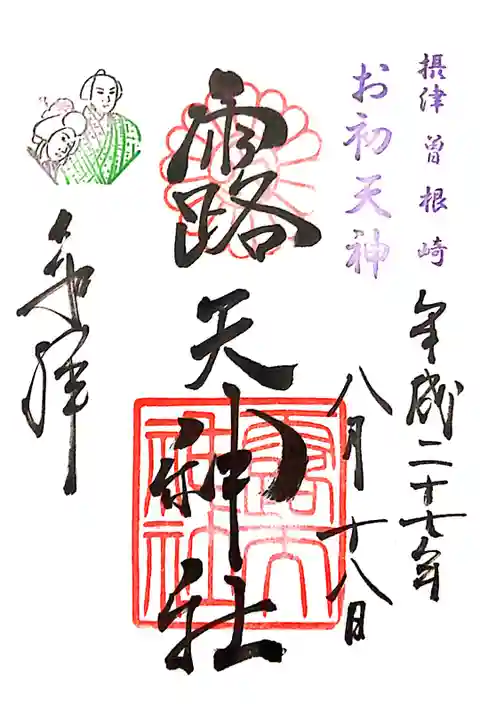 摂津 曽根崎
お初天神
平成二十七年
八月十八日
露天神社
奉拝
露天神社